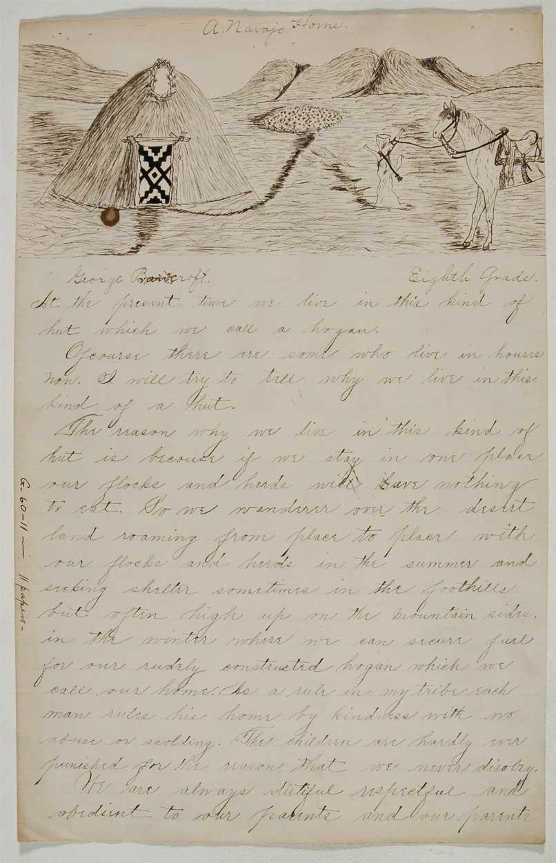 A Navajo Home.
George Bancroft.
Eighth Grade.
At the present time we live in this kind of
hut which we call a hogan.
Ofcourse there are some who live in houses
now. I will try to tell why we live in this
kind of a hut.
The reason why we live in this kind of
hut is because if we stay in one place
our flocks and herds will have nothing
to eat. So we wanderer over the desert
land roaming from place to place with
our flocks and herds in the summer and
seeking shelter sometimes in the foothills
but often high up on the mountain sides,
in the winter where we can secure fuel
for our rudely constructed hogan which we
call our home. As a rule in my tribe each
man rules his home by kindness with no
abuse or scolding. The children are hardly ever
punished for the reason that we never disobey.
We are always dutiful respectful and
obedient to our parents and our parents
G-60-11 — 11 papers-